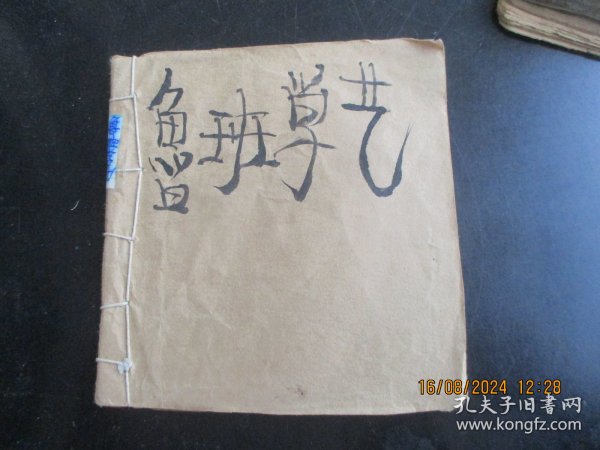 鲁班学艺
16/08/2024 12:28
孔夫子旧书网
www.kongfz.com